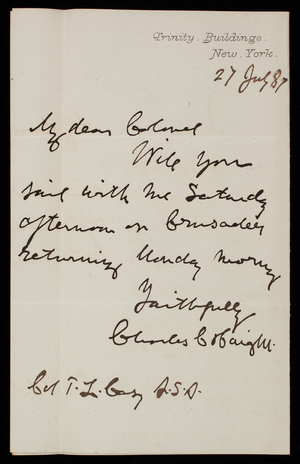 Trinity Buildings.
New York.
27 July 87
My dear Colonel
Will you
sail with me Saturday
afternoon on Crusader
returning Monday morning
Faithfully
Charles C Haight.
Col T. L. Casey U.S.A.